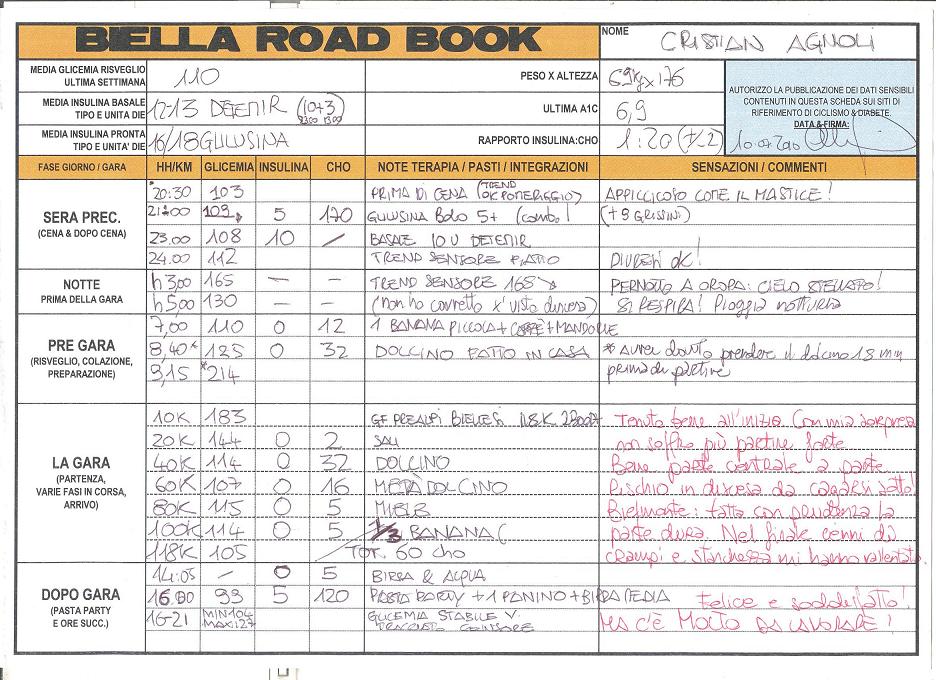 BIELLA ROAD BOOK
NOME CRISTIAN AGNOLI
MEDIA GLICEMIA RISVEGLIO
ULTIMA SETTIMANA
110
PESO X ALTEZZA 69kg x 176
MEDIA INSULINA BASALE
TIPO E UNITA DIE
12-13 DETEMIR (10+3)
23.00 13.00
ULTIMA A1C 6,9
MEDIA INSULINA PRONTA
TIPO E UNITA' DIE
16/18 GLULISINA
RAPPORTO INSULINA:CHO 1:20 (+/-2)
AUTORIZZO LA PUBBLICAZIONE DEI DATI SENSIBILI
CONTENUTI IN QUESTA SCHEDA SUI SITI DI
RIFERIMENTO DI CICLISMO & DIABETE.
DATA & FIRMA:
FASE GIORNO / GARA HH/KM GLICEMIA INSULINA CHO NOTE TERAPIA / PASTI / INTEGRAZIONI SENSAZIONI / COMMENTI
SERA PREC.
(CENA & DOPO CENA)
20:30 103 PRIMA DI CENA (TREND OK POMERIGGIO) APPICCICOSO COME IL MASTICE!
21:00 103 5 170 GLULISINA BOLO 5+ (combo! (+ 3 GRISSINI)
23.00 108 10 / BASALE 10 U DETEMIR
24.00 112 TREND SENSORE PIATTO DIURESI OK!
NOTTE
PRIMA DELLA GARA
h 3,00 165 — — TREND SENSORE 165 ↘ PERNOTTO A OROPA: CIELO STELLATO!
h 5,00 130 — — (non ho corretto x' vista discesa) SI RESPIRA! Pioggia notturna
PRE GARA
(RISVEGLIO, COLAZIONE,
PREPARAZIONE)
7,00 110 0 12 1 BANANA PICCOLA + CAFFÈ + MANDORLE
8,40* 125 0 32 DOLCINO FATTO IN CASA * Avrei dovuto prendere il dolcino 15 min
9,15 *214 prima di partire
LA GARA
(PARTENZA,
VARIE FASI IN CORSA,
ARRIVO)
10K 183 GF PREALPI BIELLESI 118K Tenuto bene all'inizio. Con mia sorpresa
20K 144 0 2 SALI non soffro più partire forte
40K 114 0 32 DOLCINO Bene parte centrale a parte
60K 107 0 16 METÀ DOLCINO rischio in discesa da cagarsi sotto!
80K 115 0 5 MIELE Bielmonte: fatta con prudenza la
100K 114 0 5 1/3 BANANA parte dura. Nel finale cenni di
118K 105 TOT. 60 cho crampi e stanchezza mi hanno rallentato
DOPO GARA
(PASTA PARTY
E ORE SUCC.)
14:05 — 0 5 BIRRA & ACQUA
16.00 99 5 120 PASTA PARTY + 1 PANINO + BIRRA MEDIA Felice e soddisfatto!
16-21 MIN 104 MAX 127 GLICEMIA STABILE V. TRACCIATO SENSORE MA C'È MOLTO DA LAVORARE!